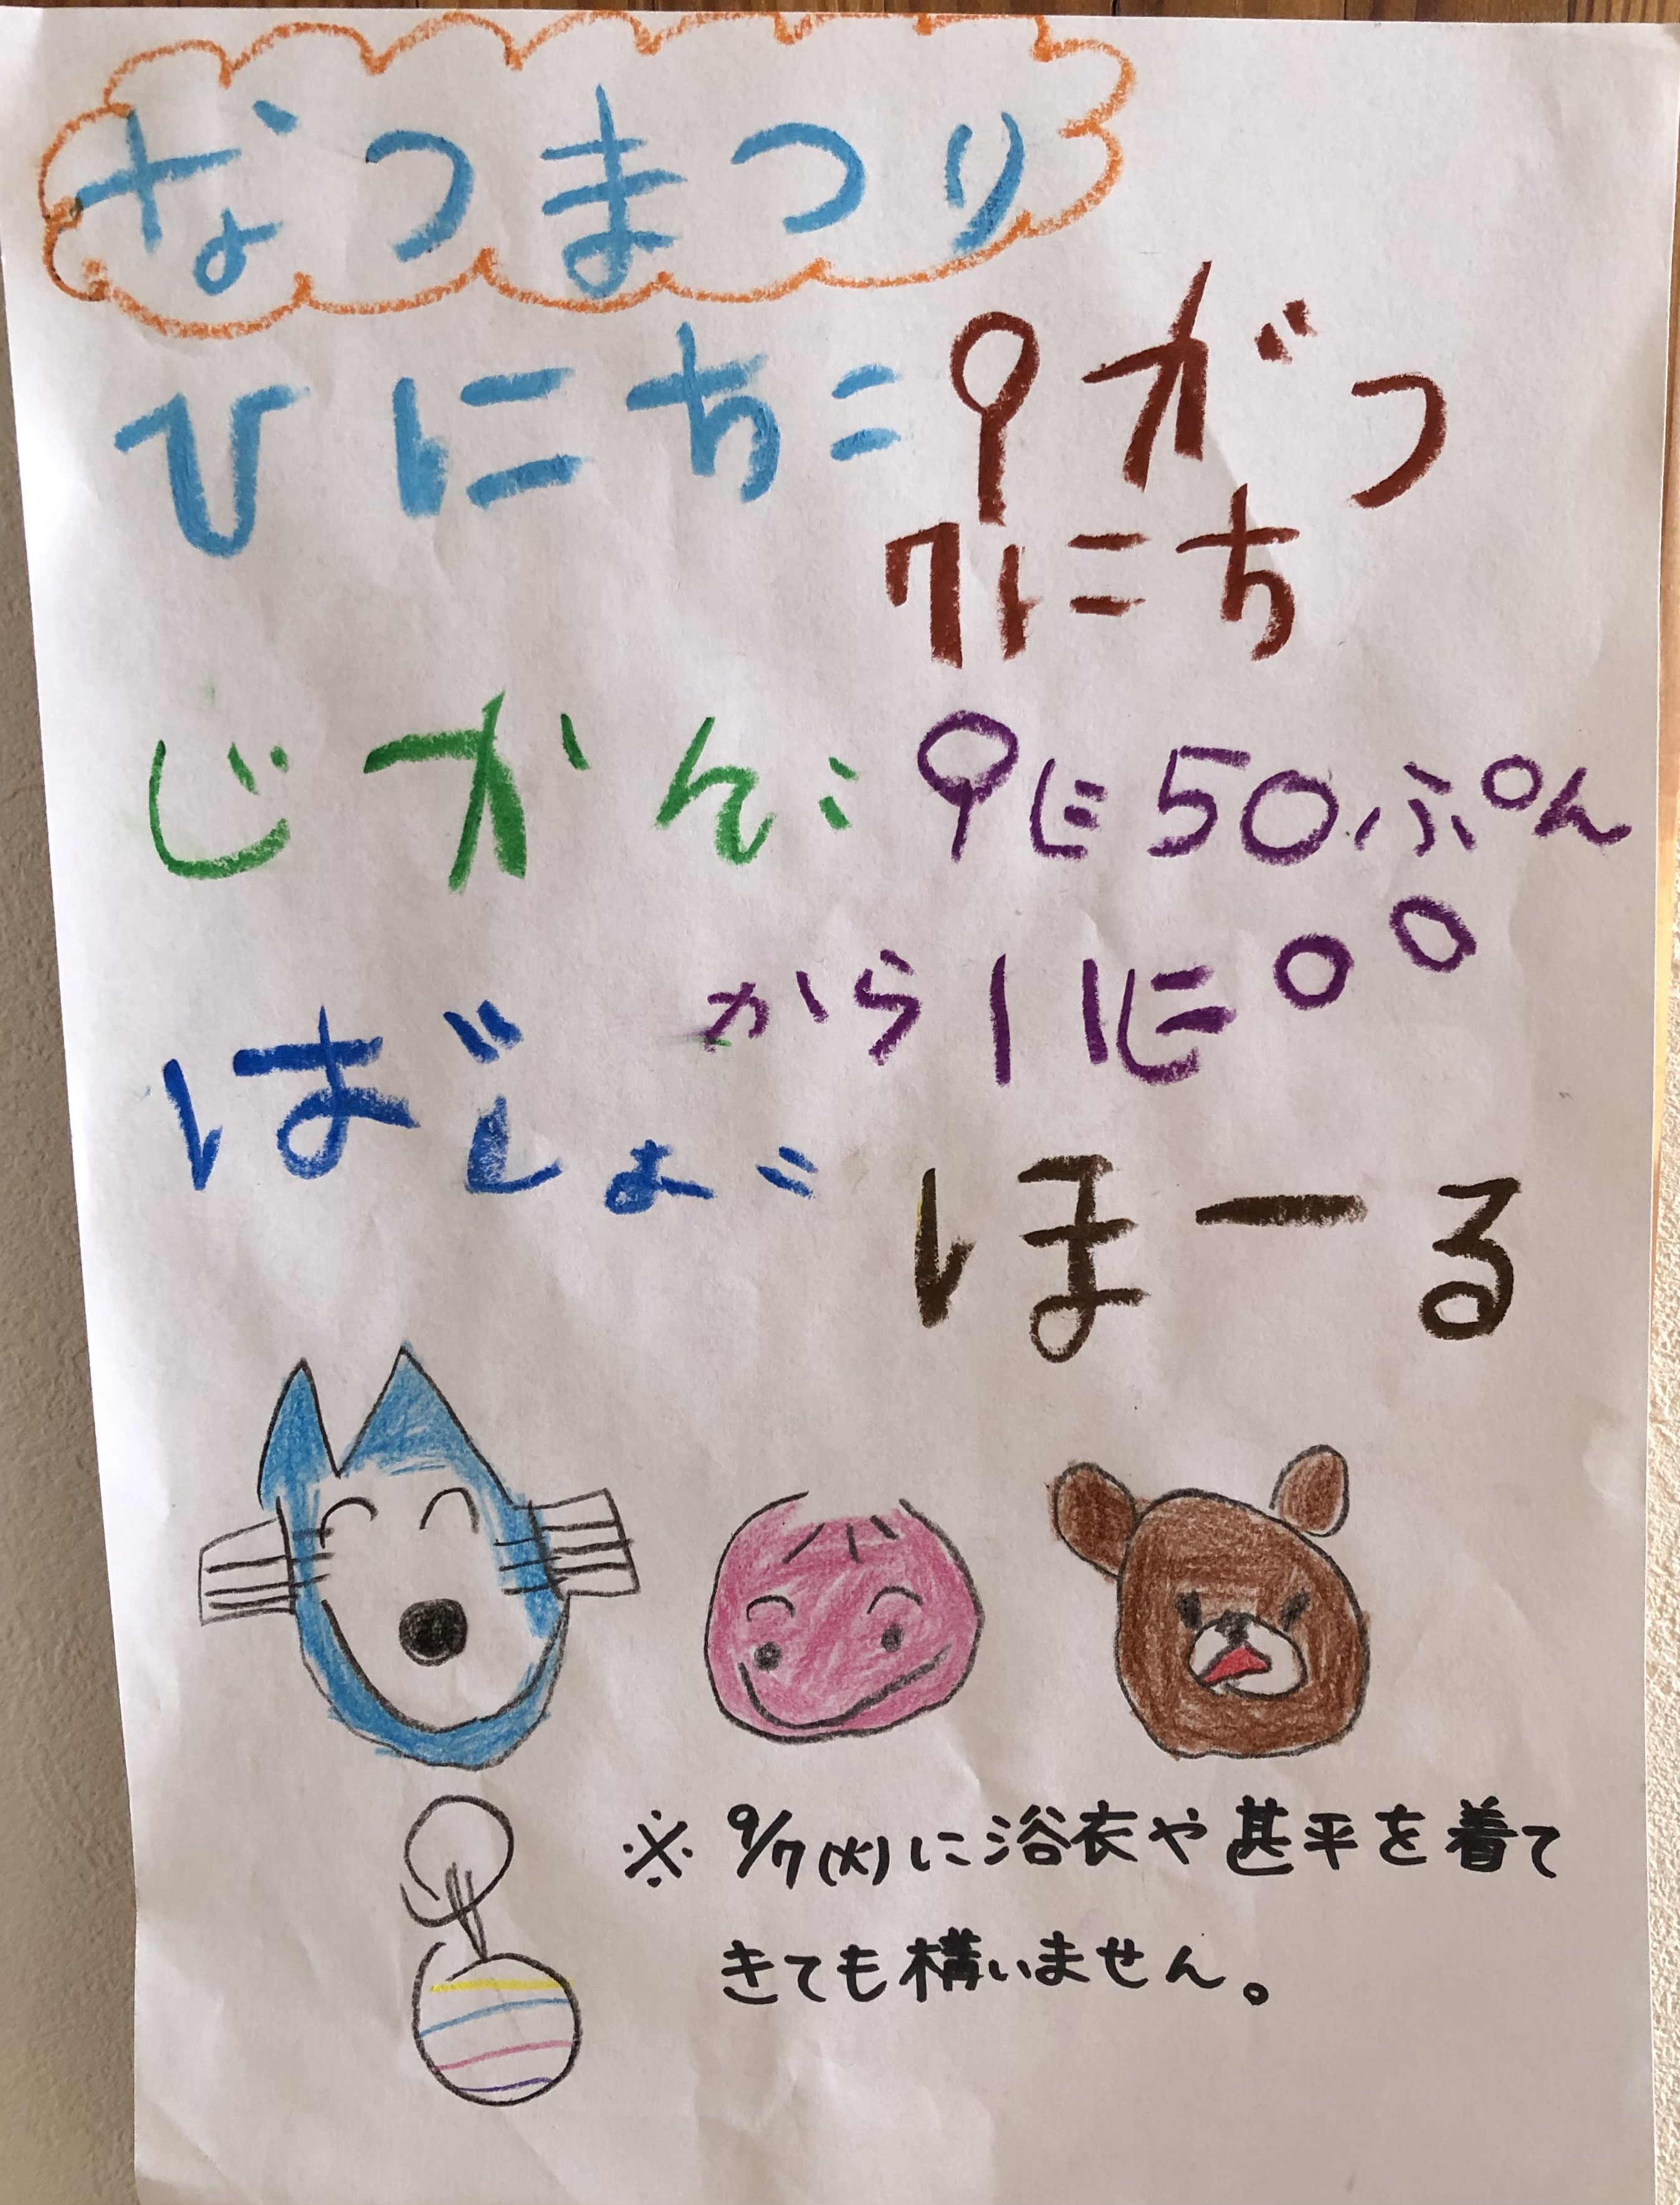 なつまつり
ひにち：9がつ
7にち
じかん：9に50ぷん
から11に00
ばしょ：ほーる
※9/7(水)に浴衣や甚平を着て
きても構いません。